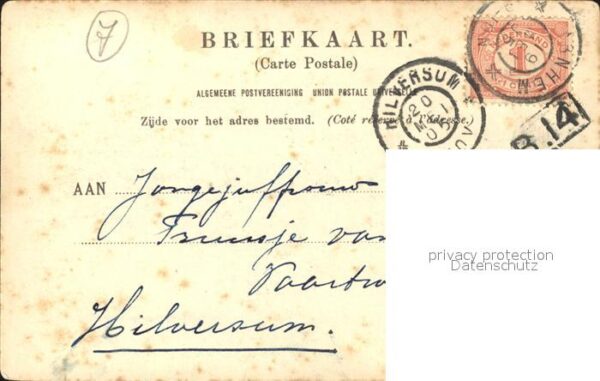 7
BRIEFKAART.
(Carte Postale)
ALGEMEENE POSTVEREENIGING UNION POSTALE UNIVERSELLE
Zijde voor het adres bestemd. (Coté réservé à l'adresse.)
NEDERLAND
1
ARNHEM
HILVERSUM
20
MEI
05
B.14
AAN Jongejuffrouw
Truusje van
Hilversum.
privacy protection
Datenschutz